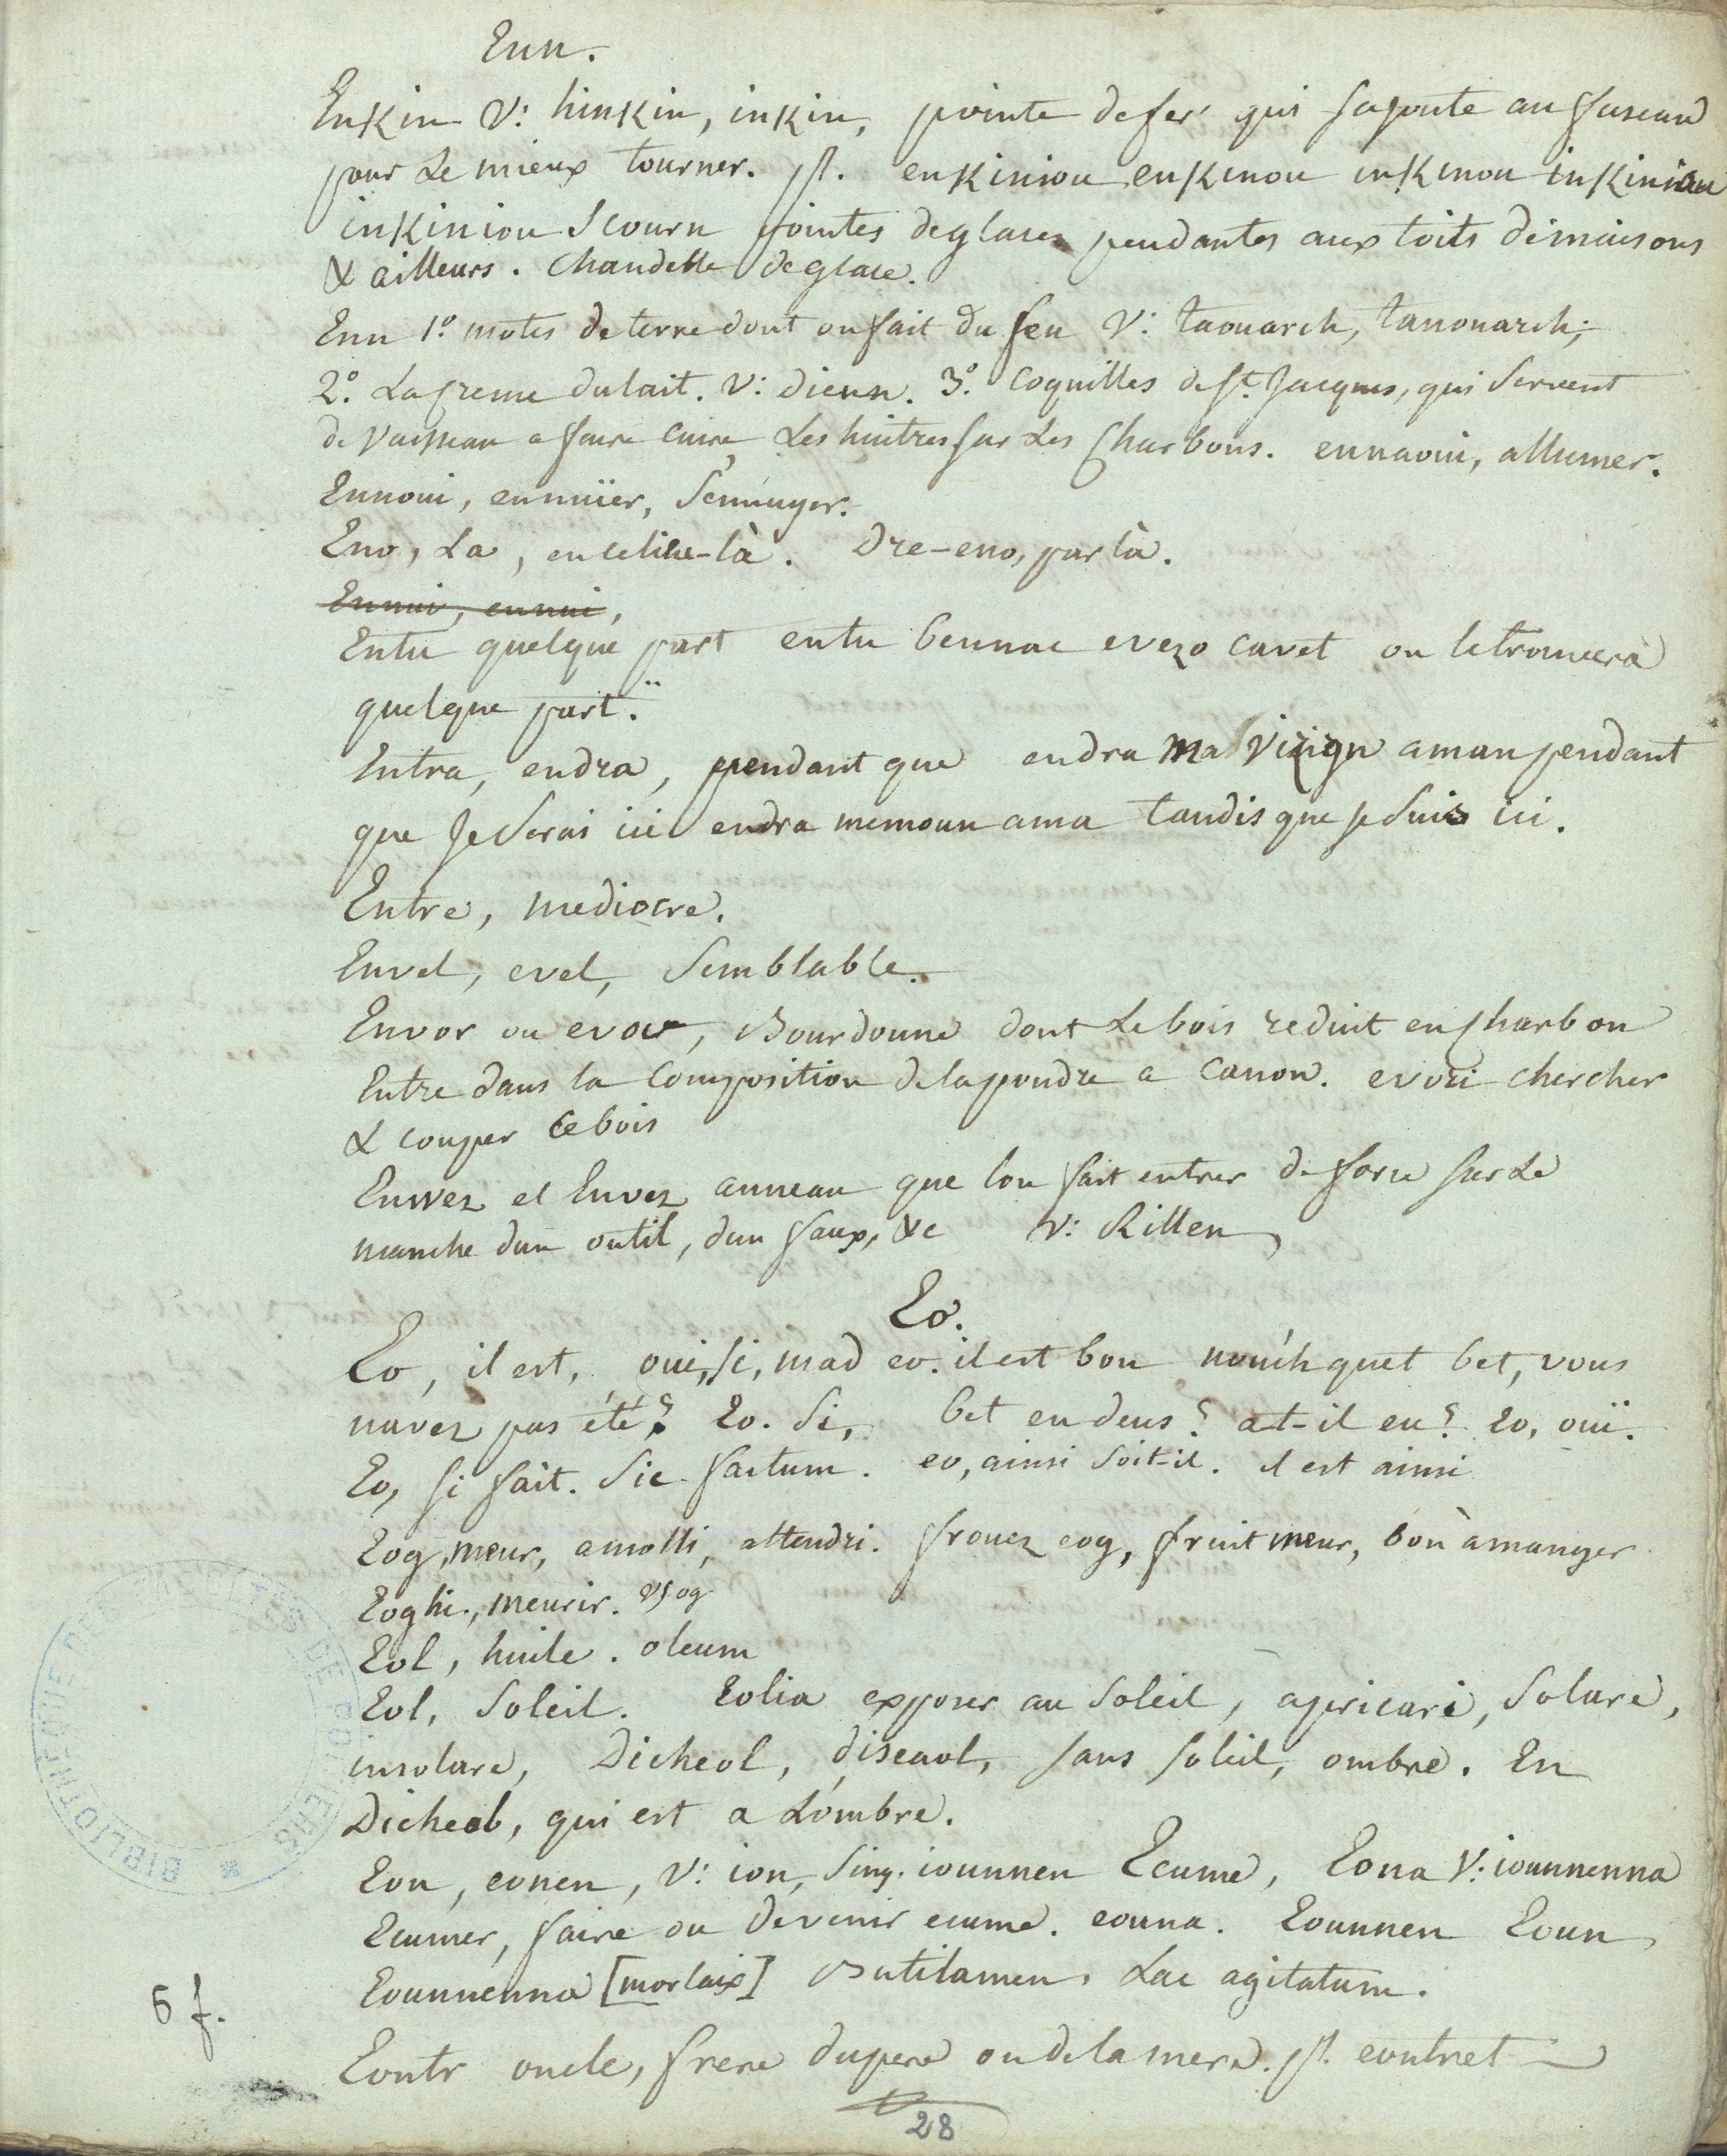 Enn.
Enkin V: hinkin, inkin, pointe de fer qui sajoute au fuseau
pour Le mieux tourner. pl. enkiniou enkinou inkinou inkiniou
inkiniou Scourn pointes de glaces pendantes aux toits de maisons
& ailleurs. Chandelle de glace.
Enn 1º motes de terre dont on fait du feu V: taouarch, tanouarch;
2º. La creme du lait. V: dienn. 3º. Coquilles de St. Jacques, qui servent
de vaisseau a faire cuire Les huitres sur Les Charbons. ennaoui, allumer.
Ennoui, ennuïer, Sennuyer.
Eno, La, en ce lieu-là. Dre-eno, par là.
Ennui, ennui,
Entu quelque part entu bennac evezo cavet on le trouvera
quelque part.
Entra, endra, pendant que endra Ma Vizign aman pendant
que Je serai ici endra memoun ama tandis que je suis ici.
Entre, mediocre.
Envel, evel, Semblable.
Envor ou evor, Bourdonne dont Le bois reduit en Charbon
Entre dans la Composition de la poudre a Canon. evori chercher
& couper Ce bois
Enwez et Envez anneau que lon fait entrer de force sur Le
manche dun outil, dun faux, &c V: Rillen
Eo.
Eo, il est, oui, si, mad eo. il est bon nouc'h quet bet, vous
navez pas été? Eo. Si, bet en deus? at-il eu? Eo, ouï.
Eo, si fait. Sic factum. eo, ainsi Soit-il. il est ainsi
Eog, meur, amolli, attendri. frouez eog, fruit meur, bon à manger
Eoghi, meurir. V: og
Eol, huile. oleum
Eol, Soleil. Eolia exposer au Soleil, apricari, Solare,
insolare, Dicheol, diseaol, sans soleil, ombre. En
Dicheol, qui est a L'ombre.
Eon, eonen, V: ion, Sing. iounnen Ecume, Eona V: iounnenna
Ecumer, faire ou Devenir ecume. eouna. Eounnen Eoun
Eounnenna [morlaix] Butilamen. Lac agitatum.
Eontr oncle, frere du pere ou de la mere. pl. eontret
6 f.
28
BIBLIOTHÈQUE DE POITIERS